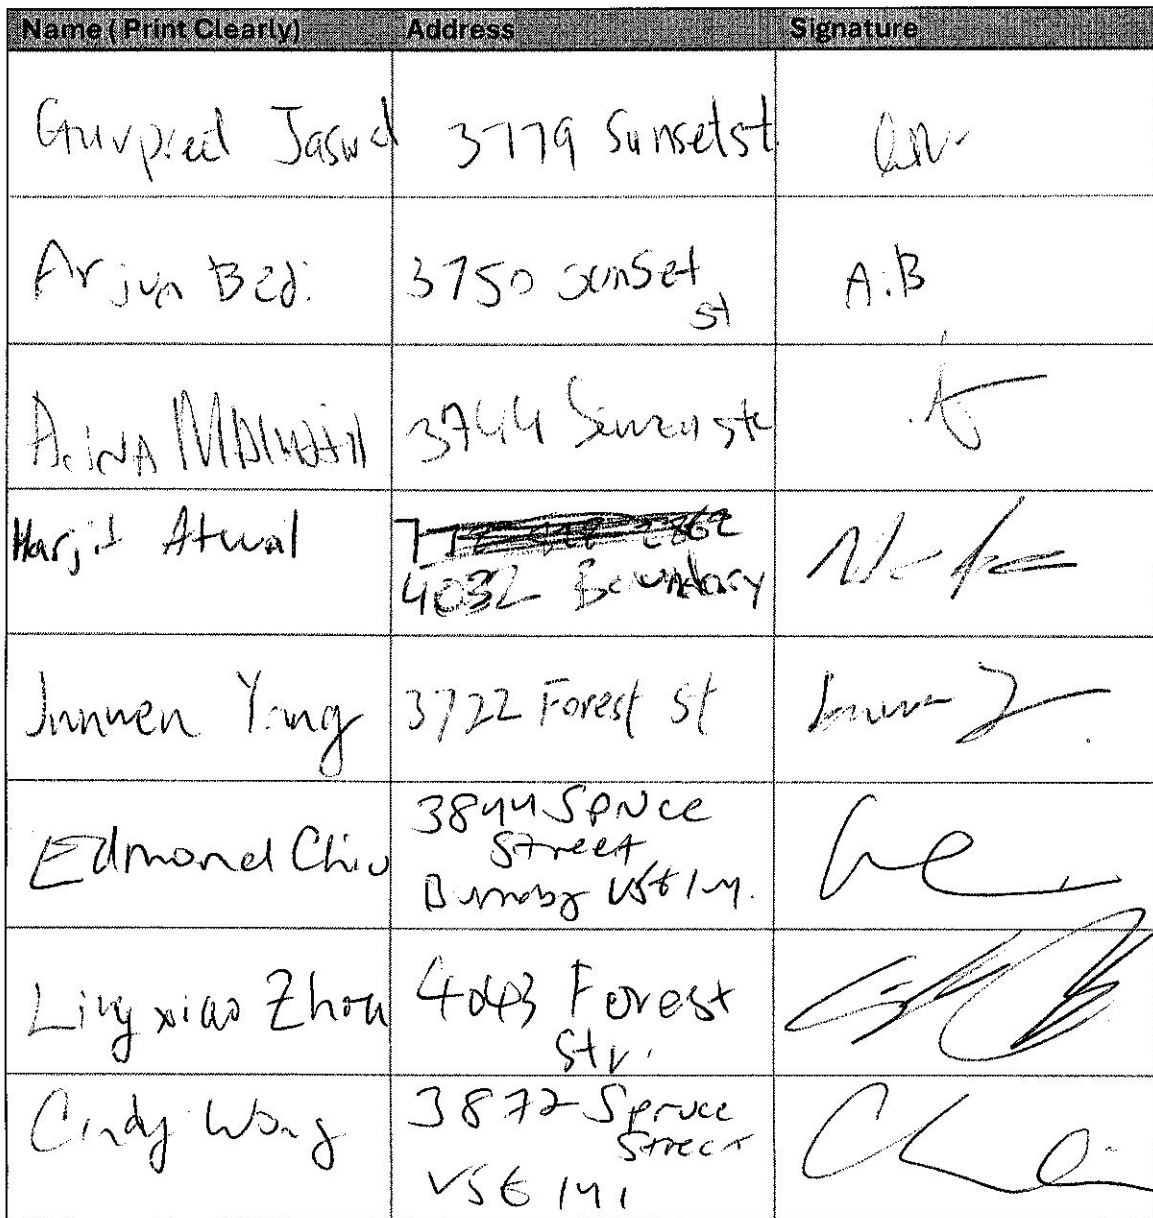 Name ( Print Clearly) Address Signature
Gurpreet Jaswal 3779 Sunset st.
Arjun Bedi. 3750 sunset
st
A.B
3744
Harjit Atwal
4032 Boundary
Junwen Yang 3722 Forest St
Edmond Chiu 3844 Spruce
Street
Burnaby V5G 1Y1.
Lingxiao Zhou 4043 Forest
Str.
Cindy Wong 3872 Spruce
Street
V5G 1Y1